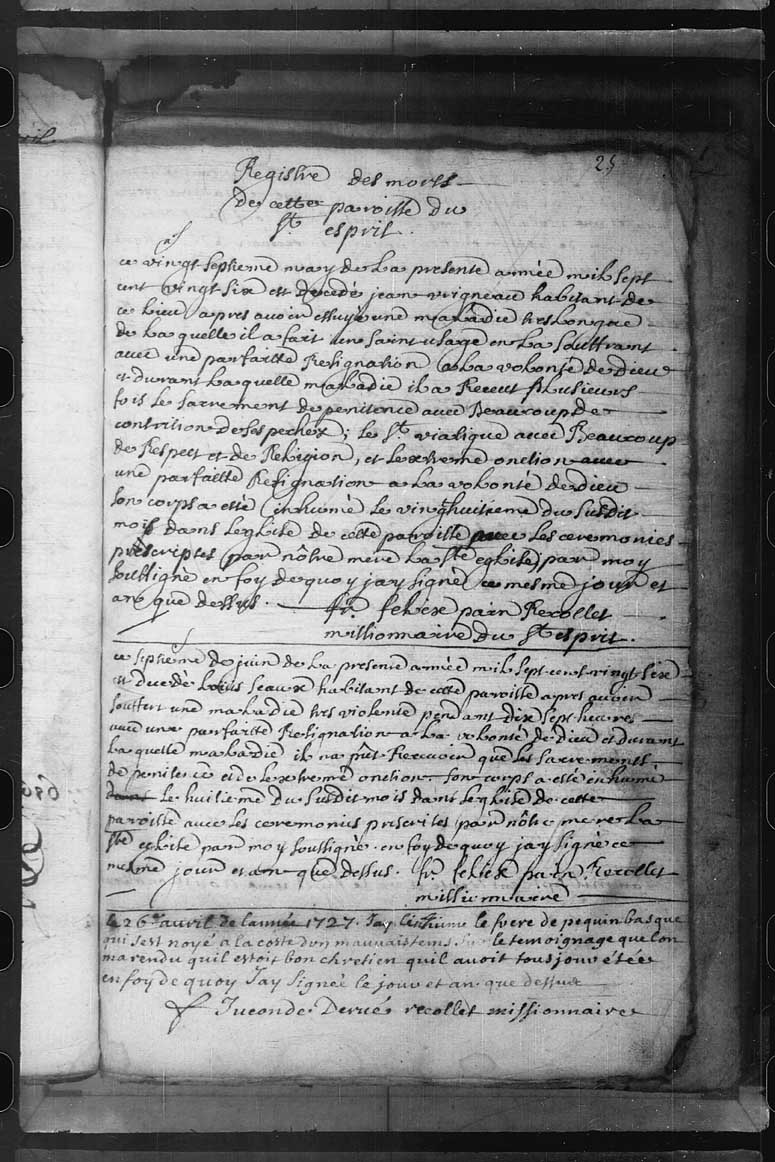 25
Registre des morts
de cette paroisse du
St esprit.
ce vingt septieme may de la presente année mil sept
cent vingt six est decedé jean vrigneau habitant de
ce lieu apres avoir essuyé une maladie tres longue
de la quelle il a fait un saint usage en la souffrant
avec une parfaitte Resignation a la volonté de dieu
et durant laquelle maladie il a Receut plusieurs
fois le sacrement de penitence avec Beaucoup de
contrition de ses pechez; le St viatique avec Beaucoup
de Respect et de Religion, et lextreme onction avec
une parfaitte Resignation a la volonté de dieu
son corps a esté inhumé le vingt huitieme du susdit
mois dans leglise de cette paroisse avec les ceremonies
prescriptes par nôtre mere la Ste eglise par moy
soussigné en foy de quoy jay signé ce mesme jour et
an que dessus. fr. felix pain Recollet
missionnaire du St esprit.
ce septieme de juin de la presente année mil sept cent vingt six
est decedé Louis seaux habitant de cette paroisse apres avoir
souffert une maladie tres violente pendant dix sept heures
avec une parfaitte Resignation a la volonté de dieu et durant
laquelle maladie il na pût Recevoir que les sacrements
de penitence et de lextreme onction. son corps a esté inhumé
dans le huitieme du susdit mois dans leglise de cette
paroisse avec les ceremonies prescrites par nôtre mere la
Ste eglise par moy soussigné. en foy de quoy jay signé ce
mesme jour et an que dessus. fr. felix pain Recollet
missionnaire
le 26e avril de lannée 1727. Jay Einhumé le frere de pequin basque
qui sest noyé a la coste dun mauvais tems. sur le temoignage que lon
ma rendu quil estoit bon chretien quil avoit tousjour étée
en foy de quoy Jay Signée le jour et an. que dessus
f Juconde Derué recollet missionnaire